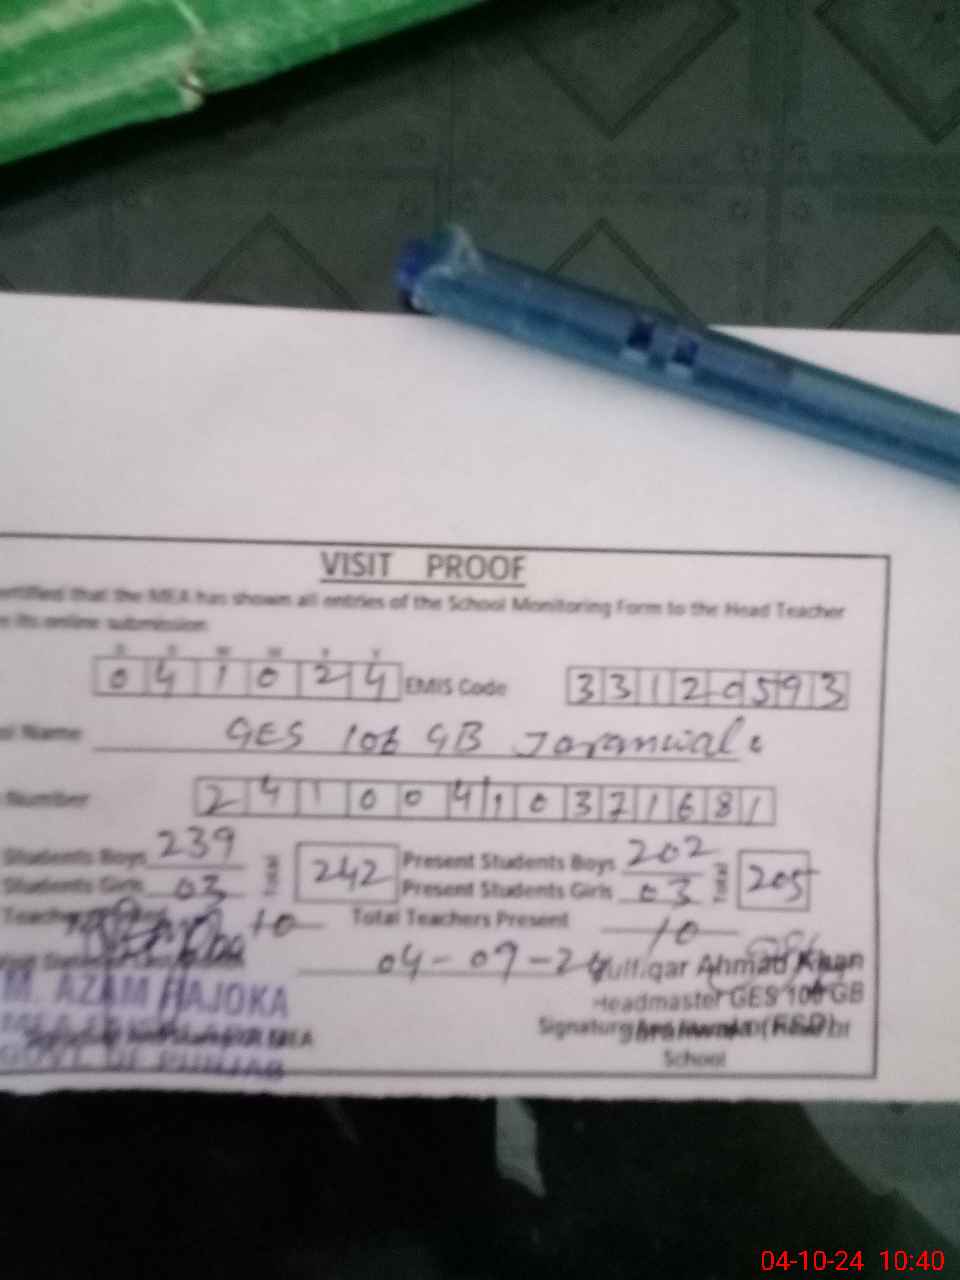 VISIT PROOF
that the MEA has shown all entries of the School Monitoring Form to the Head Teacher
its online submission
D D M M Y Y
0 4 1 0 2 4 EMIS Code 3 3 1 2 0 5 9 3
Name GES 106 GB Jaranwala
Number 2 4 1 0 0 4 1 0 3 7 1 6 8 1
Students Boys 239 Total 242 Present Students Boys 202 Total 205
Students Girls 03 Present Students Girls 03
10 Total Teachers Present 10
04-09-24 Ahmad Khan
M. AZAM HAJOKA Headmaster GES 106 GB
MEA Signature
GOVT. OF PUNJAB School
04-10-24 10:40